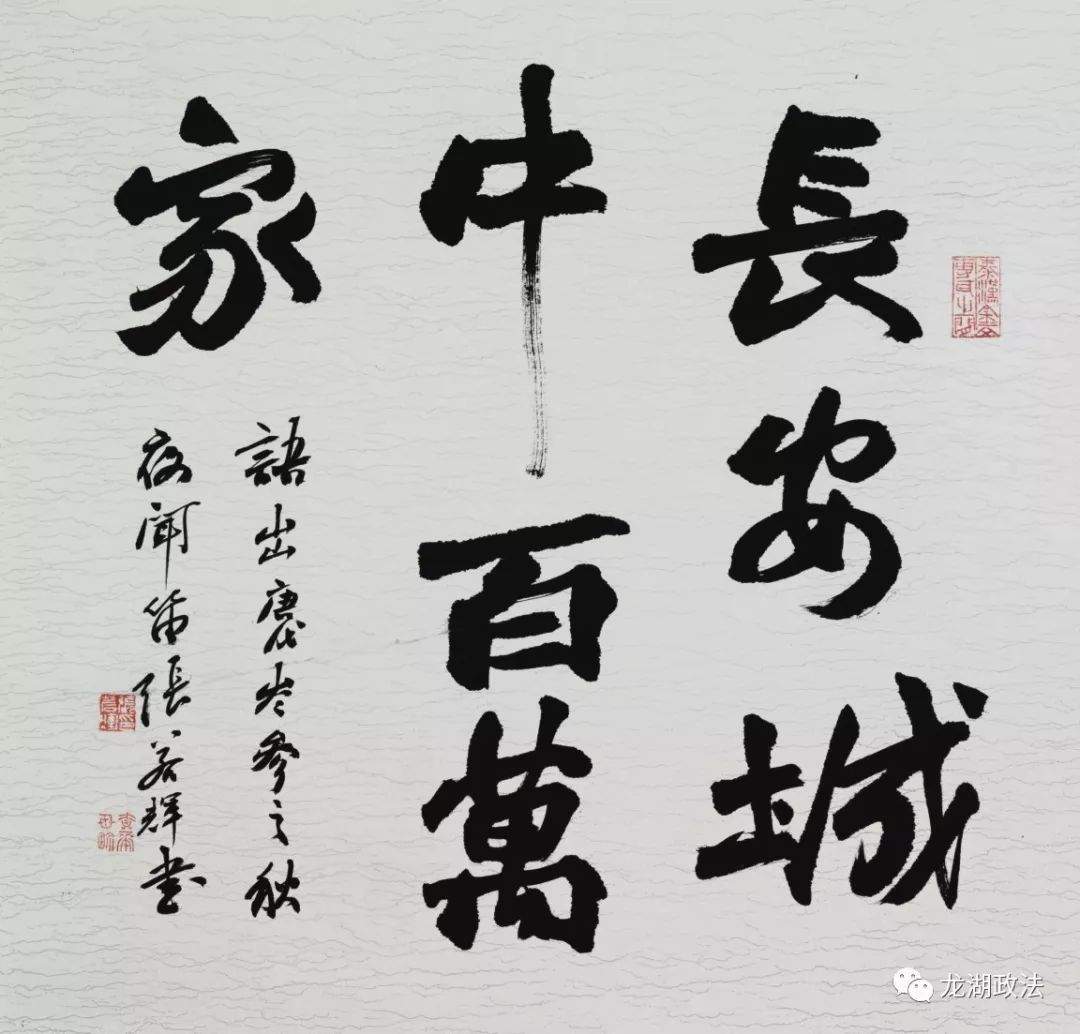 長安城
中百萬
家
語出唐代岑參之秋
夜聞笛張若輝书
龙湖政法